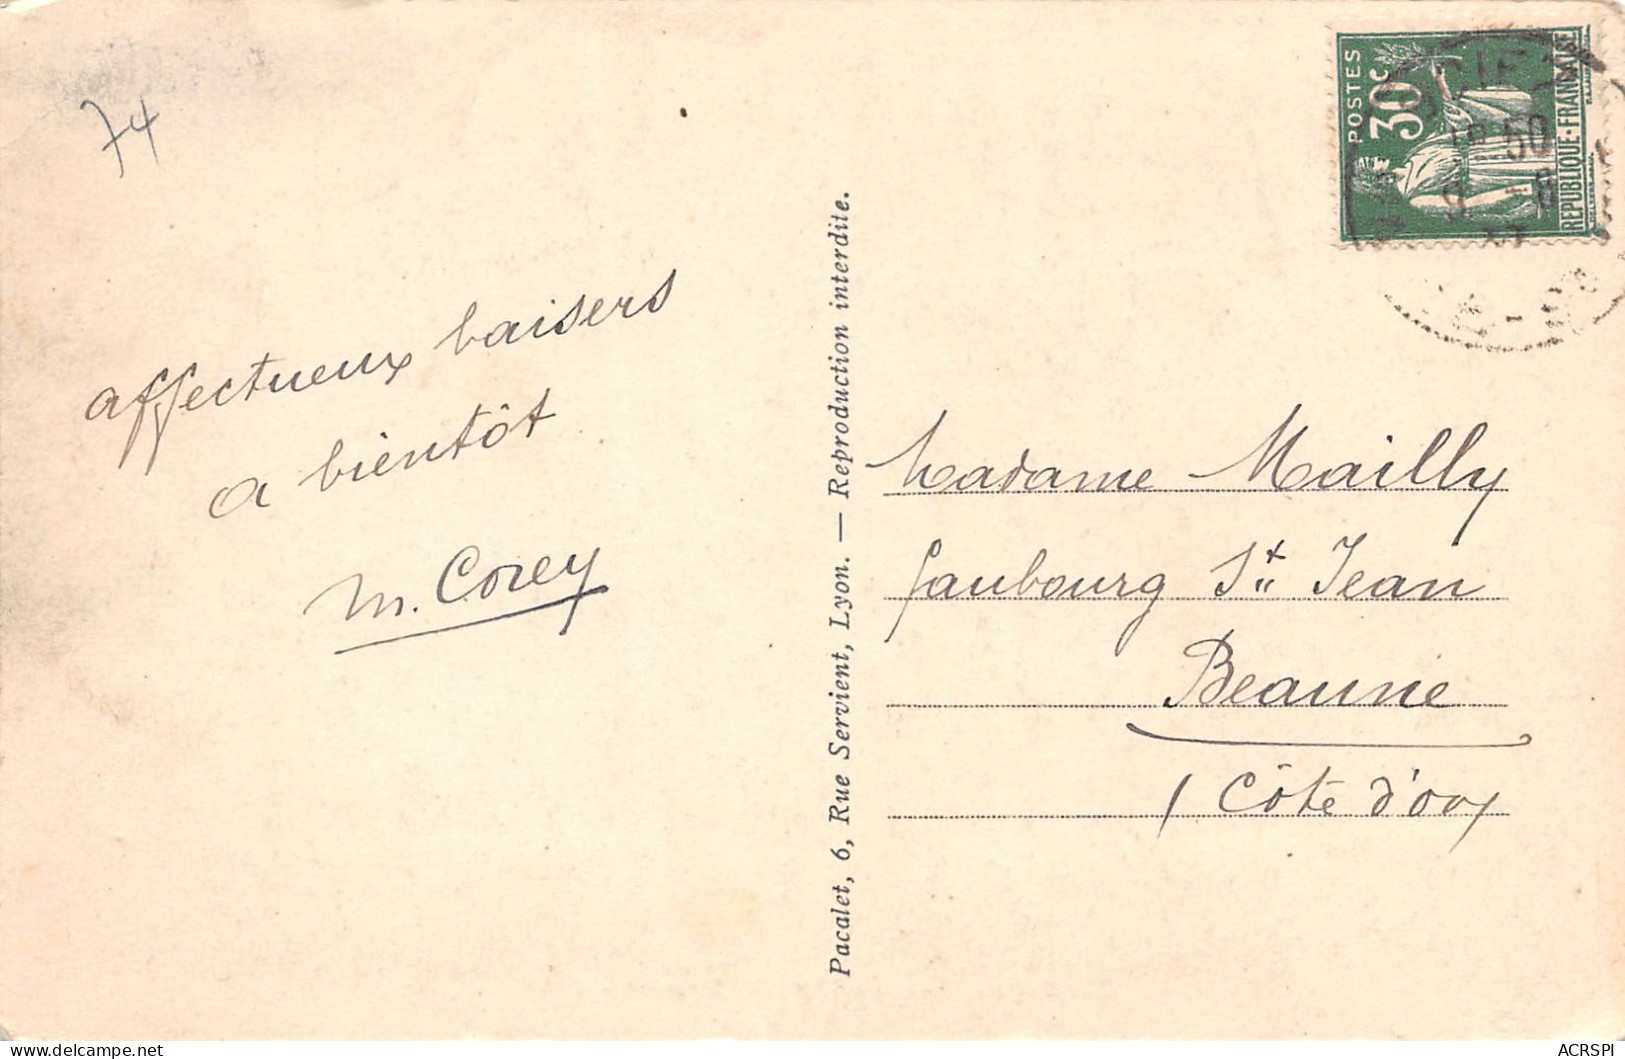 74
affectueux baisers
a bientôt
M. Corey
Pacalet, 6, Rue Servient, Lyon. — Reproduction interdite.
POSTES
30c
REPUBLIQUE-FRANÇAISE
50
9
Madame Mailly
faubourg St Jean
Beaune
(Côte d'or)
ACRSPI